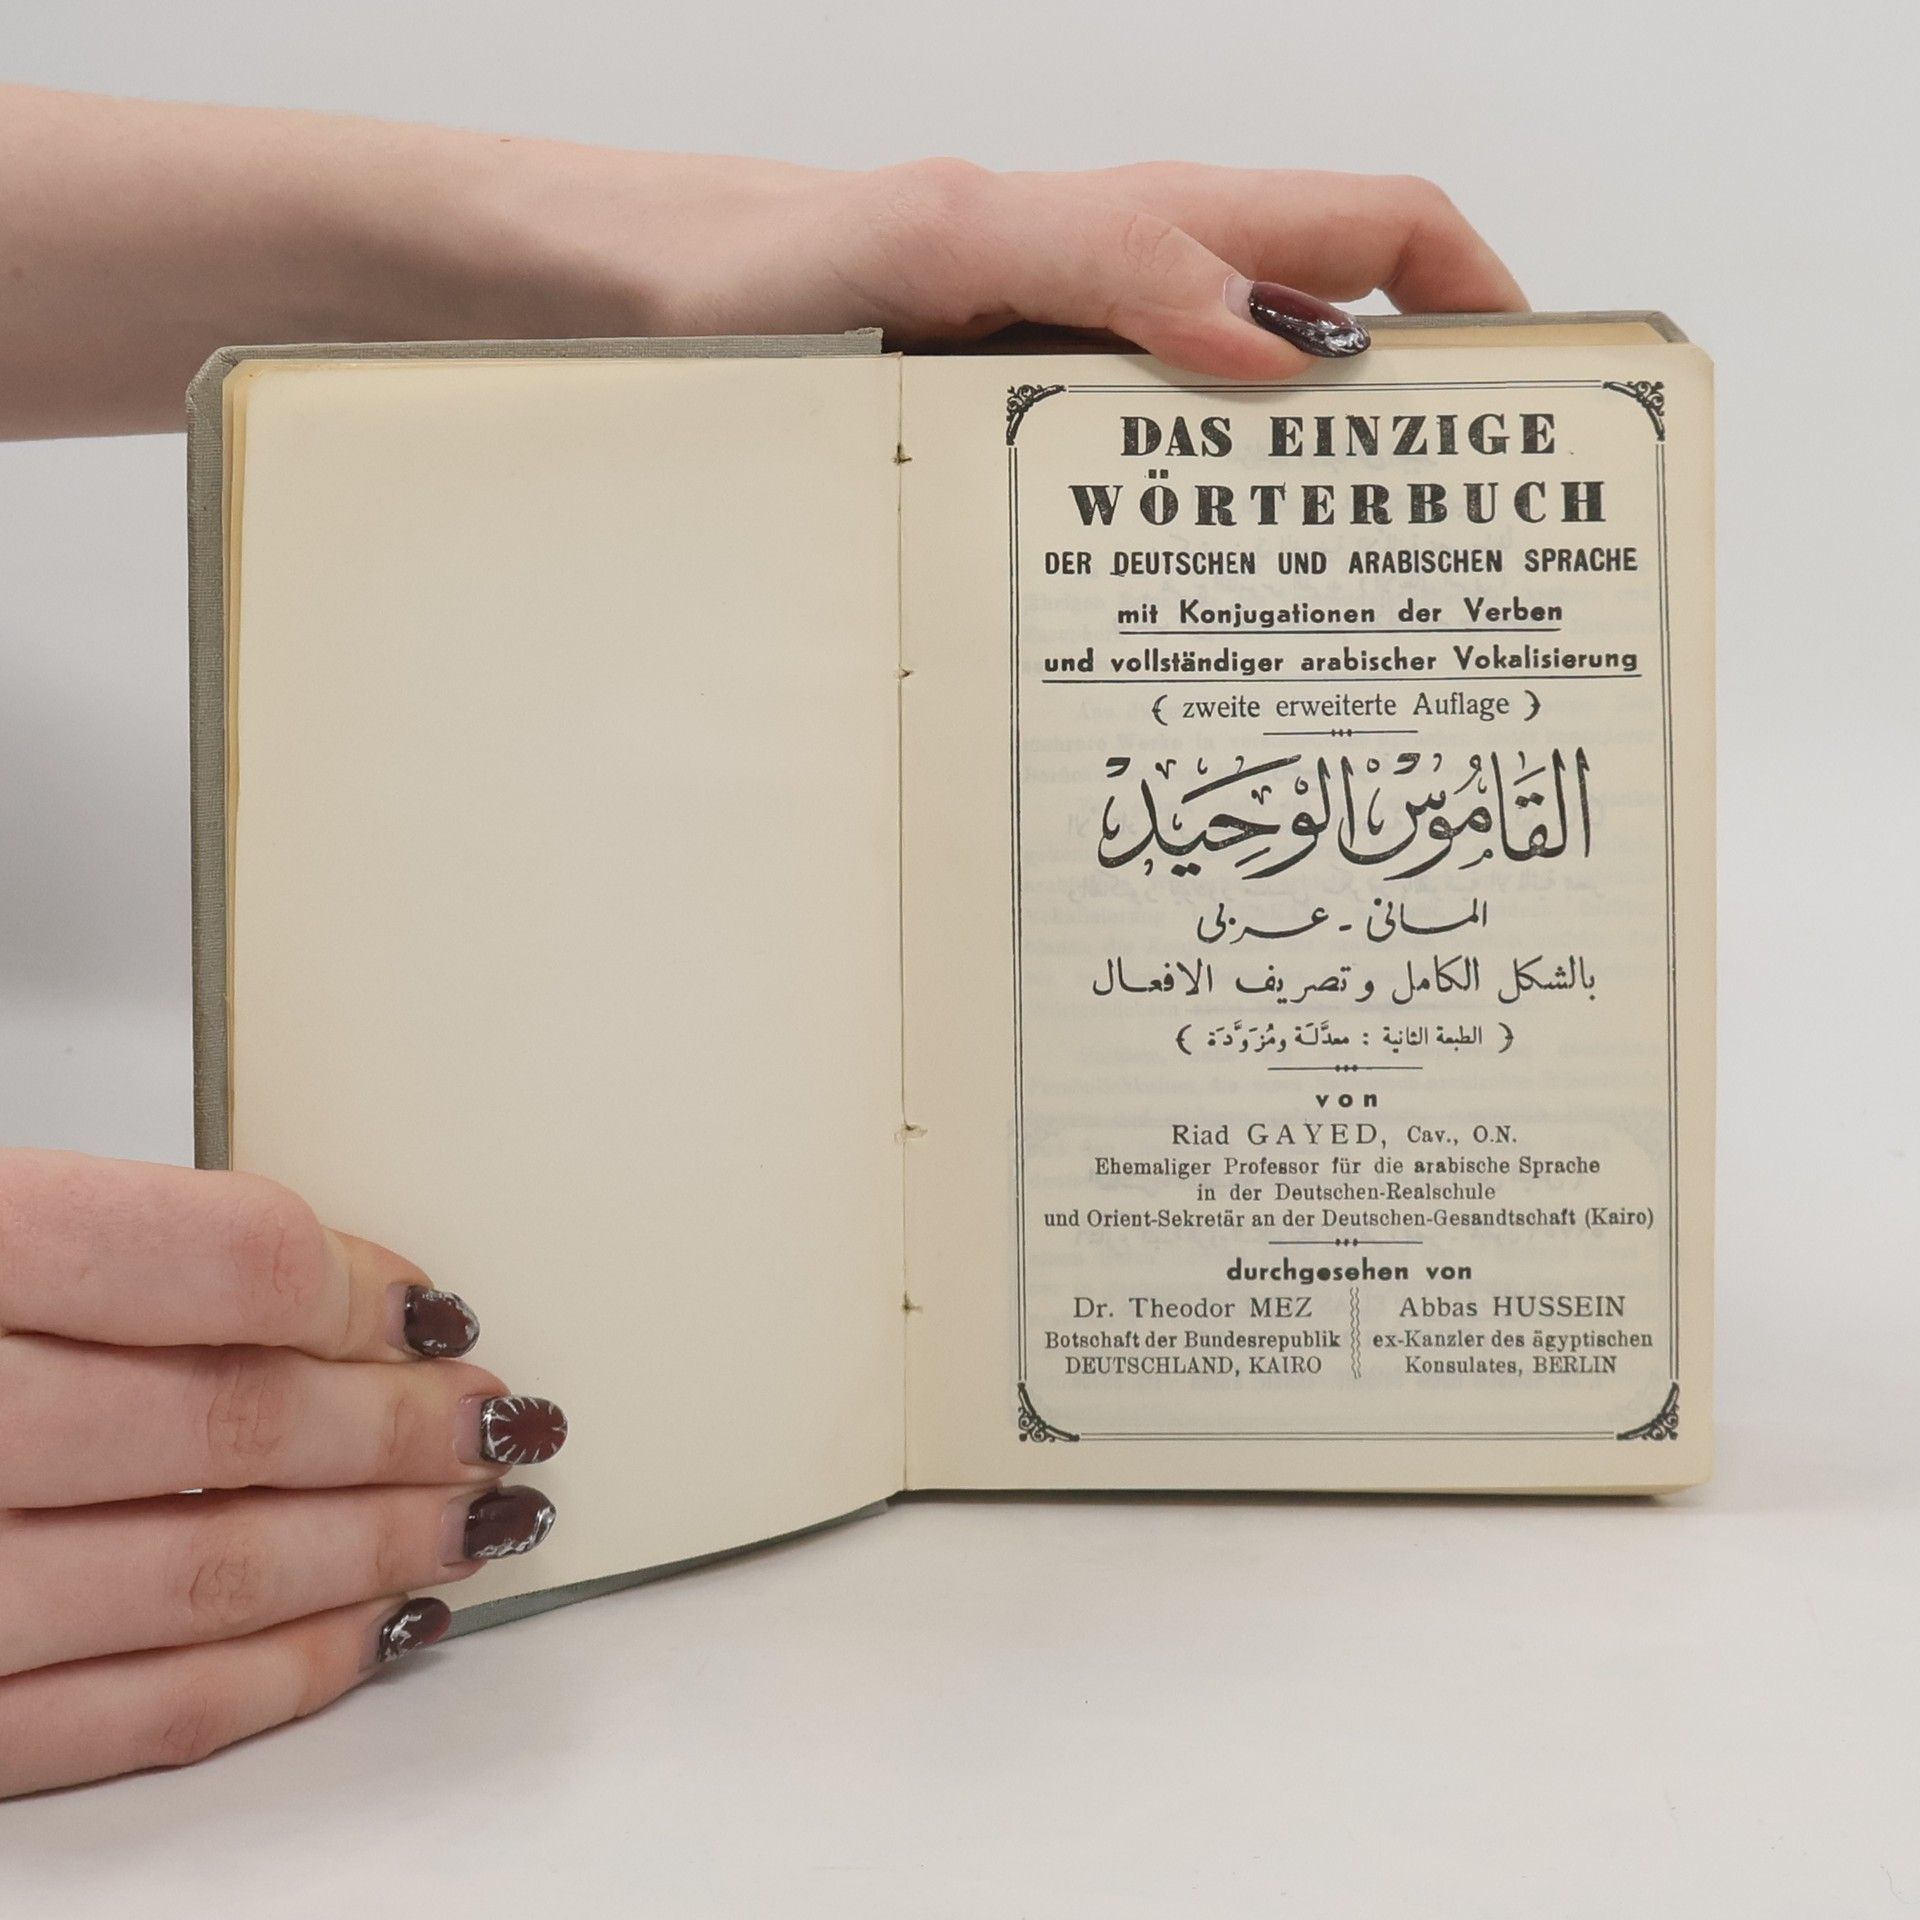 DAS EINZIGE
WÖRTERBUCH
DER DEUTSCHEN UND ARABISCHEN SPRACHE
mit Konjugationen der Verben
und vollständiger arabischer Vokalisierung
( zweite erweiterte Auflage )
القَامُوسْ الْوَحِيَدْ
المانى - عربى
بالشكل الكامل و تصريف الافعال
( الطبعة الثانية : معدَّلَة ومُزَوَّدَة )
von
Riad GAYED, Cav., O.N.
Ehemaliger Professor für die arabische Sprache
in der Deutschen-Realschule
und Orient-Sekretär an der Deutschen-Gesandtschaft (Kairo)
durchgesehen von
Dr. Theodor MEZ
Botschaft der Bundesrepublik
DEUTSCHLAND, KAIRO
Abbas HUSSEIN
ex-Kanzler des ägyptischen
Konsulates, BERLIN